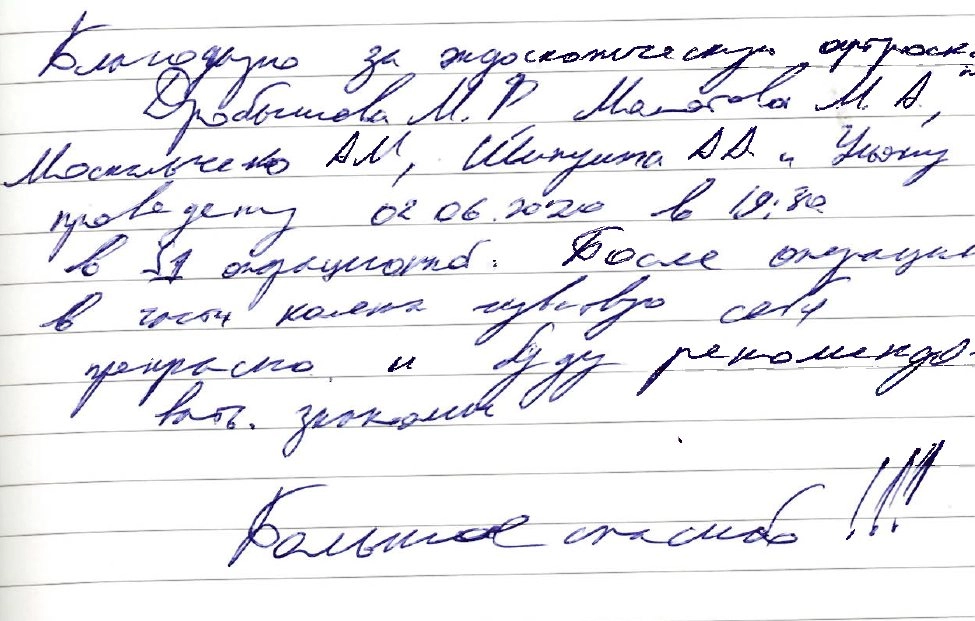 Благодарю за эндоскопическую артроск
Дробышова М.Р, Маматова М А,
Москальченко АМ, Шипулина АА и Ульяну
проведену 02 06.2020 в 19:30
в 51 операционной. После операции
в части колена чувствую себя
прекрасно и буду рекомендо-
вать. знакомым
Большое спасибо !!!!